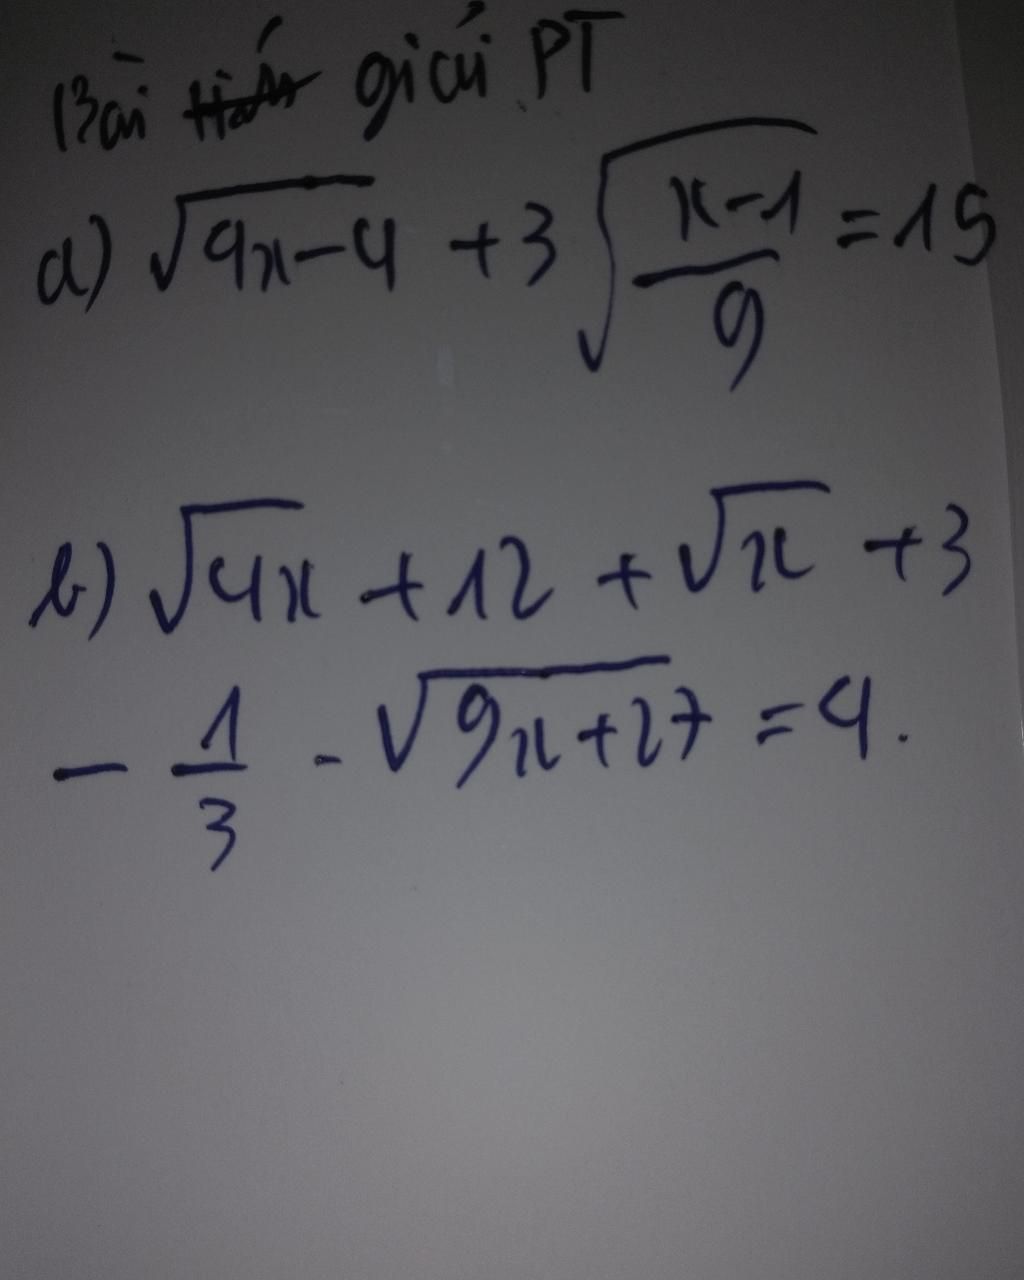 Bài giải PT
a) √4x-4 + 3√(x-1)/9 = 15
b) √4x + 12 + √x + 3
- 1/3 - √9x+27 = 4.